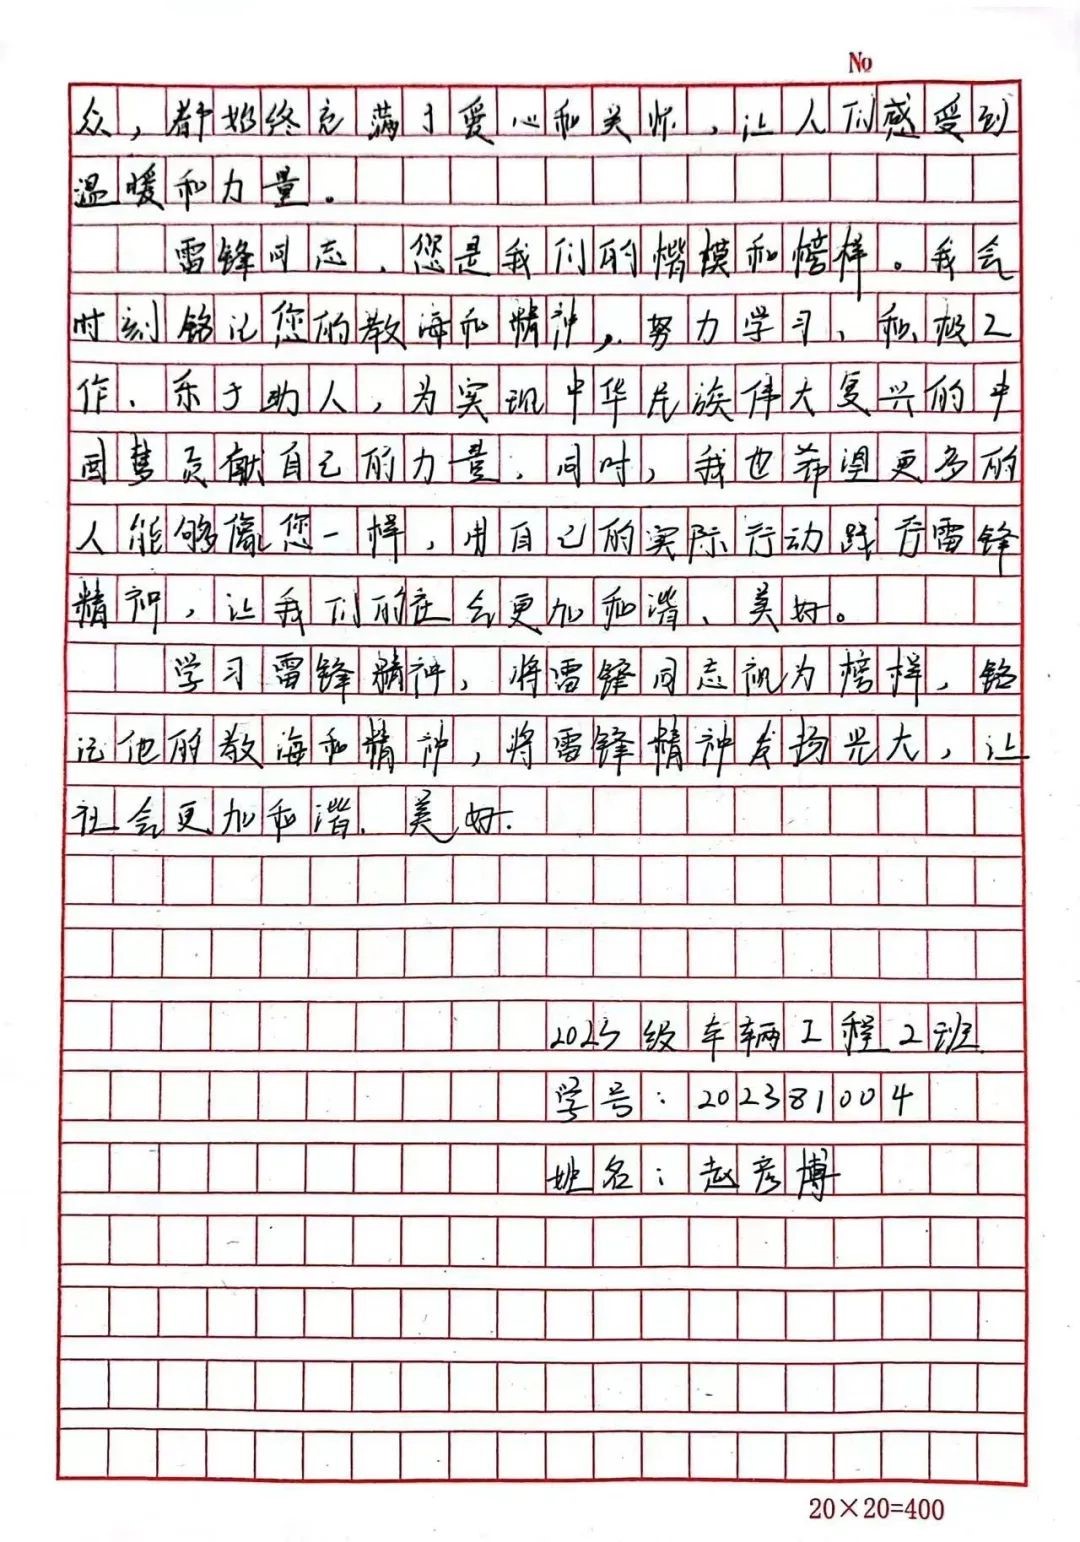 No
众，都始终充满了爱心和关怀，让人们感受到
温暖和力量。
雷锋同志，您是我们的楷模和榜样。我会
时刻铭记您的教海和精神，努力学习、积极工
作、乐于助人，为实现中华民族伟大复兴的中
国梦贡献自己的力量。同时，我也希望更多的
人能够像您一样，用自己的实际行动践行雷锋
精神，让我们的社会更加和谐、美好。
学习雷锋精神，将雷锋同志视为榜样，铭
记他的教海和精神，将雷锋精神发扬光大，让
社会更加和谐、美好.
2023级车辆工程2班
学号：202381004
姓名：赵彦博
20×20=400